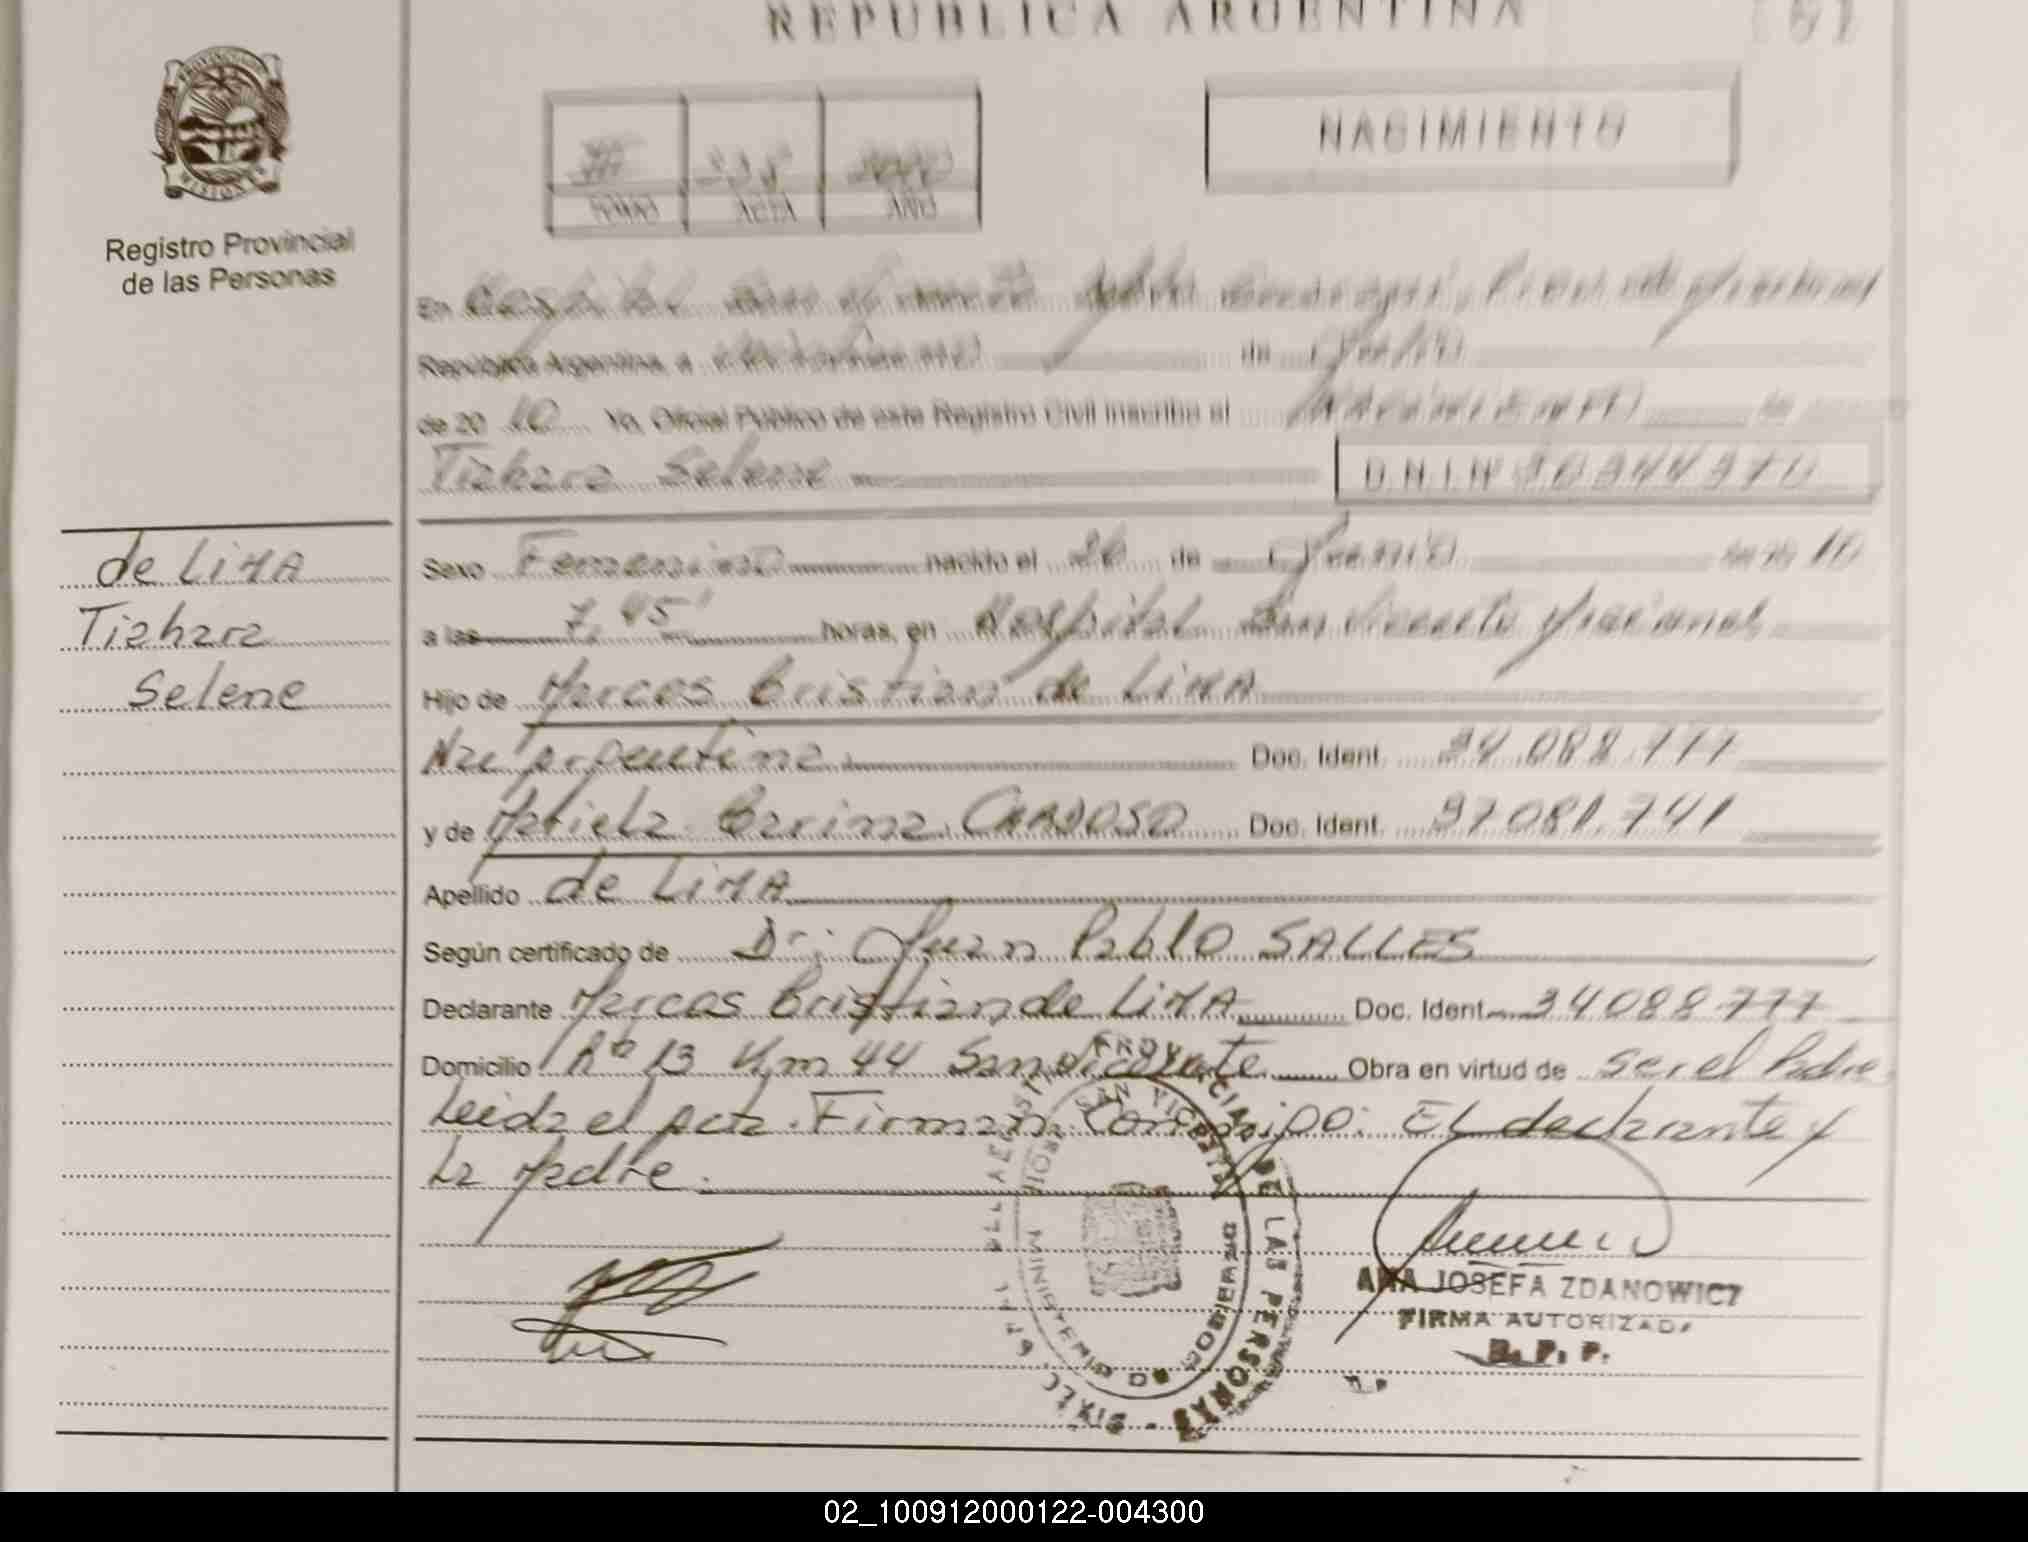 REPUBLICA ARGENTINA
NACIMIENTO
TOMO
ACTA
AÑO
Registro Provincial
de las Personas
En Hospital
República Argentina, a de Julio
de 20 10 Yo, Oficial Público de este Registro Civil inscribo el Nacimiento
Tiahara Selene D.N.I.Nº
de LIMA
Tiahara
Selene
Sexo Femenino nacido el 26 de Junio 10
a las 7,45' horas, en Hospital San Vicente Misiones
Hijo de Marcos Cristian de LIMA
Nac Argentina Doc. Ident. 34.088.777
y de Mariela Carina CARDOSO Doc. Ident. 37081.741
Apellido de LIMA
Según certificado de Dr: Juan Pablo SALLES
Declarante Marcos Cristian de LIMA Doc. Ident. 34088777
Domicilio Rº 13 Km 44 San Vicente Obra en virtud de ser el Padre
Leída el Acta. Firman Conmigo: El declarante y
La Madre.
PROVINCIAL DE LAS PERSONAS
SAN VICENTE
MINISTERIO DE GOBIERNO
ANA JOSEFA ZDANOWICZ
FIRMA AUTORIZADA
R. P. P.
02_100912000122-004300